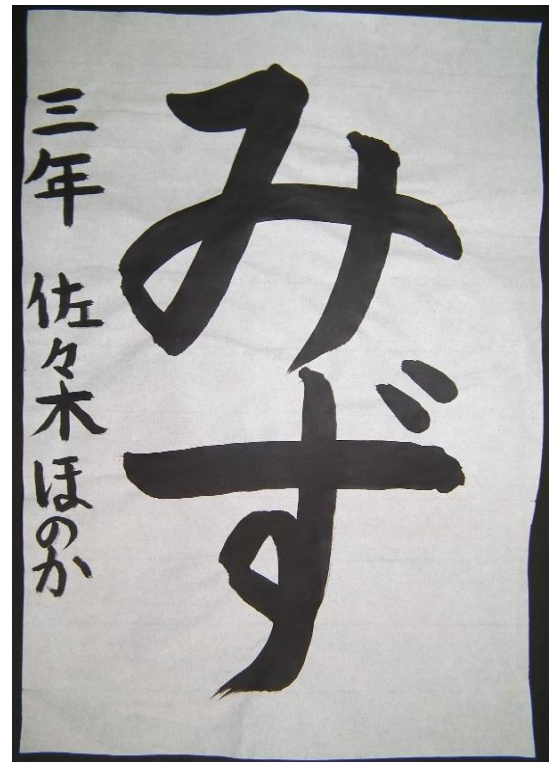 みず
三年 佐々木ほのか